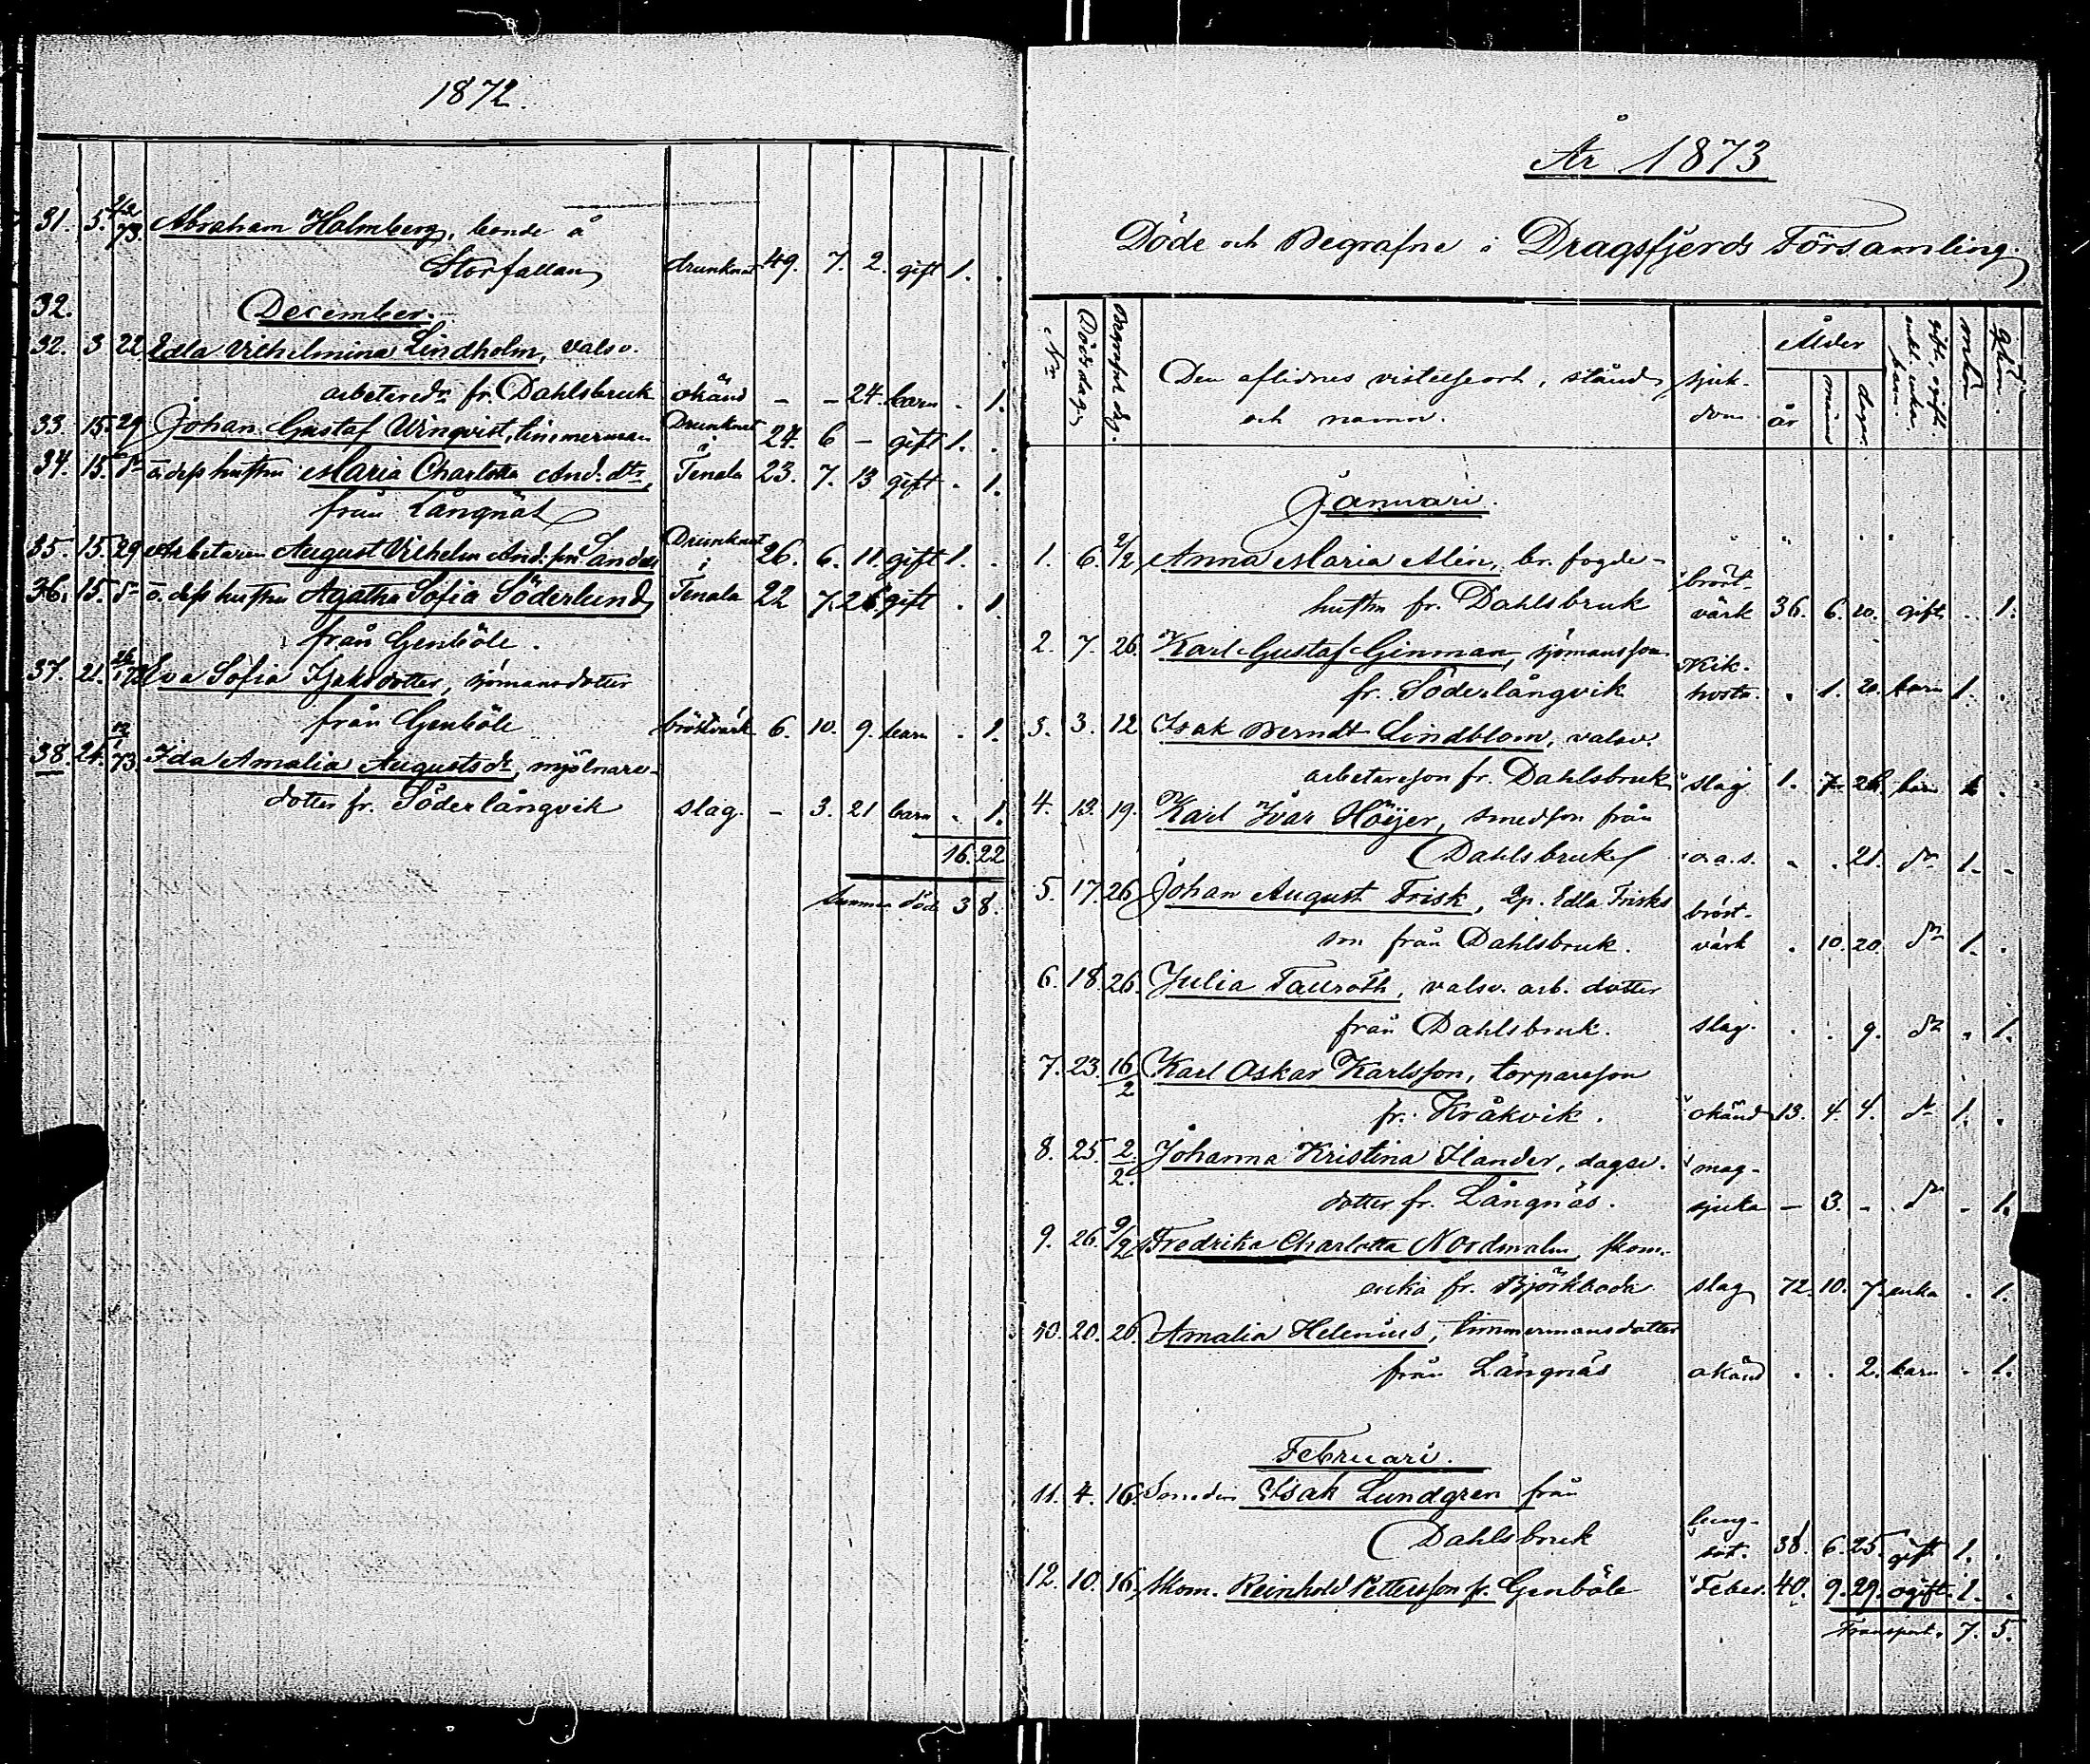 1872.
31. 5. 73. Abraham Holmberg, bonde å
Storfallan drunknat 49. 7. 2. gift 1. .
32. December.
32. 3 22 Edla Vilhelmina Lindholm, valsv.
arbetaredr fr. Dahlsbruk okänd - - 24. barn . 1.
33. 15. 29 Johan Gustaf Winqvist, timmerman Drunknat 24. 6 - gift 1. .
34. 15. do o. dess hustru Maria Charlotta And. dtr, i Tenala 23. 7. 13 gift . 1.
från Långnäs
35. 15. 29 Arbetaren August Vilhelm And:son Sander Drunknat i 26. 6. 11. gift 1. .
36. 15. do o. dess hustru Agatha Sofia Söderlund Tenala 22 7. gift . 1
från Genböle.
37. 21. Eva Sofia Isaksdotter, sjömansdotter
från Genböle bröstvärk 6. 10. 9. barn . 1.
38. 24. 12/1 73. Ida Amalia Augustsdr, mjölnare-
dotter fr. Söderlångvik slag. - 3. 21 barn . 1.
16. 22
Summa döde 38.
År 1873
Döde och Begrafne i Dragsfjerds Församling
No Dödsdag Begrafn. dag. Den aflidnes vistelseort, stånd och namn. sjuk-dom Ålder år månad dagar gift, ogift, enkl., enka, barn. mankön qvkön.
Januari.
1. 6. 2/2 Anna Maria Alin, br. fogde-
hustru fr. Dahlsbruk bröst-värk 36. 6. 20. gift . 1.
2. 7. 26. Karl Gustaf Ginman, sjömansson
fr. Söderlångvik Kik-hosta. . 1. 20. barn 1. .
3. 3. 12 Isak Berndt Lindblom, valsv.
arbetareson fr. Dahlsbruk slag 1. 7. 26. barn 1 .
4. 13. 19. Karl Ivar Höijer, smedson från
Dahlsbruk o.a.s. . . 21. do 1. .
5. 17. 26 Johan August Frisk, Qp. Edla Frisks
son från Dahlsbruk. bröst-värk . 10. 20. do 1. .
6. 18. 26. Julia Tauroth, valsv. arb. dotter
från Dahlsbruk. slag. . . 9. do . 1.
7. 23. 16/2 Karl Oskar Karlsson, torpareson
fr. Kråkvik. okänd 13. 4. 4. do 1. .
8. 25. 2/2. Johanna Kristina Ilander, dagsv.
dotter fr. Långnäs. mag-sjuka - 3. - do . 1.
9. 26. 9/2 Fredrika Charlotta Nordmalm, skom.
enka fr. Björkboda slag 72. 10. 7. enka . 1.
10. 20. 26. Amalia Helenius, timmermansdotter
från Långnäs okänd . . 2. barn . 1.
Februari.
11. 4. 16. Smeden Isak Lundgren från
Dahlsbruk lung-sot. 38. 6. 25. gift 1. .
12. 10. 16. Skom. Reinhold Pettersson fr. Genböle Feber. 40. 9. 29. ogift. 1. .
Transport. 7. 5.